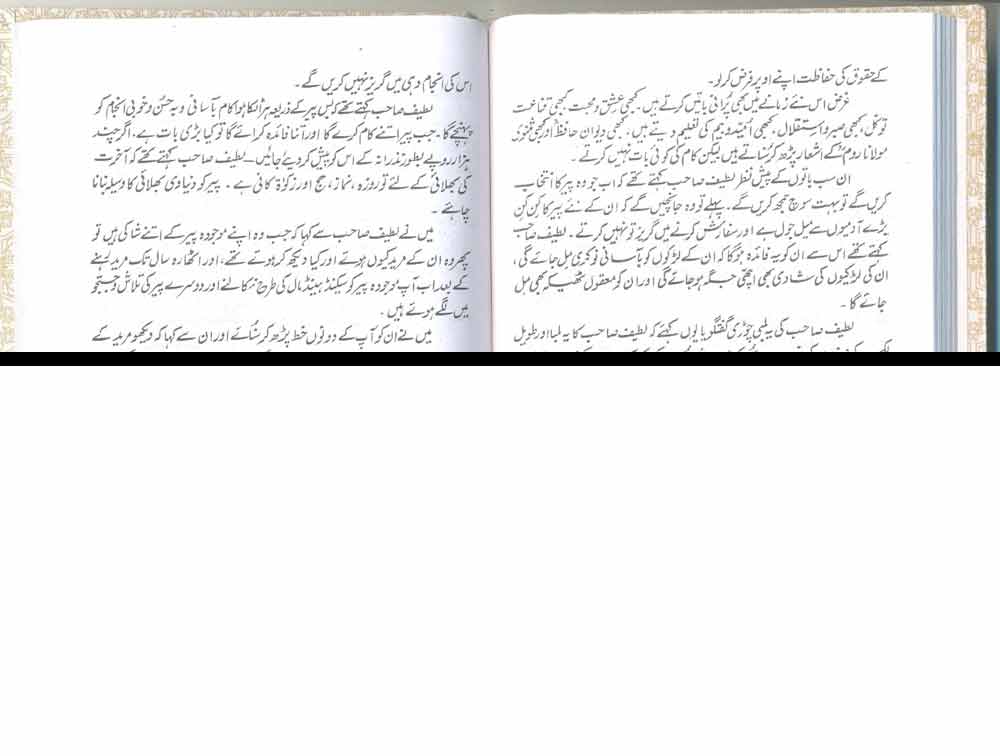 کے حقوق کی حفاظت اپنے اوپر فرض کر لو۔
غرض اس نئے زمانے میں بھی پُرانی باتیں کرتے ہیں۔ کبھی عشق و محبت کبھی قناعت
توکل، کبھی صبر و استقلال، کبھی اُمید و بیم کی تعلیم دیتے ہیں، کبھی دیوان حافظؒ اور کبھی مثنوی
مولانا رومؒ کے اشعار پڑھ کر سُناتے ہیں لیکن کام کی کوئی بات نہیں کرتے۔
ان سب باتوں کے پیش نظر لطیف صاحب کہتے تھے کہ اب جو وہ پیر کا انتخاب
کریں گے تو بہت سوچ سمجھ کر کریں گے۔ پہلے تو وہ جانچیں گے کہ ان کے نئے پیر کا کن کن
بڑے آدمیوں سے میل جول ہے اور سفارش کرنے میں گریز تو نہیں کرتے۔ لطیف صاحب
کہتے تھے اس سے ان کو یہ فائدہ ہوگا کہ ان کے لڑکوں کو بآسانی نوکری مل جائے گی،
ان کی لڑکیوں کی شادی بھی اچھی جگہ ہو جائے گی اور ان کو معقول ٹھیکہ بھی مل
جائے گا۔
لطیف صاحب کی یہ لمبی چوڑی گفتگو یا یوں کہئے کہ لطیف صاحب کا یہ لمبا اور طویل
اس کی انجام دہی میں گریز نہیں کریں گے۔
لطیف صاحب کہتے تھے کہ اس پیر کے ذریعہ ہر اٹکا ہوا کام بآسانی و بہ حسن و خوبی انجام کو
پہنچے گا۔ جب پیر اتنے کام کرے گا اور اتنا فائدہ کرائے گا تو کیا بڑی بات ہے، اگر چند
ہزار روپے بطور نذرانہ کے اس کو پیش کر دیئے جائیں۔ لطیف صاحب کہتے تھے کہ آخرت
کی بھلائی کے لئے تو روزہ، نماز، حج اور زکوٰۃ کافی ہے۔ پیر کو دنیاوی بھلائی کا وسیلہ بنانا
چاہئے۔
میں نے لطیف صاحب سے کہا کہ جب وہ اپنے موجودہ پیر کے اتنے شاکی ہیں تو
پھر وہ ان کے مرید کیوں ہوئے اور کیا دیکھ کر ہوئے تھے، اور اٹھارہ سال تک مرید رہنے
کے بعد اب آپ موجودہ پیر کو سیکنڈ ہینڈ مال کی طرح نکالنے اور دوسرے پیر کی تلاش و جستجو
میں لگے ہوئے ہیں۔
میں نے ان کو آپ کے دونوں خط پڑھ کر سُنائے اور ان سے کہا کہ دیکھو مرید کے